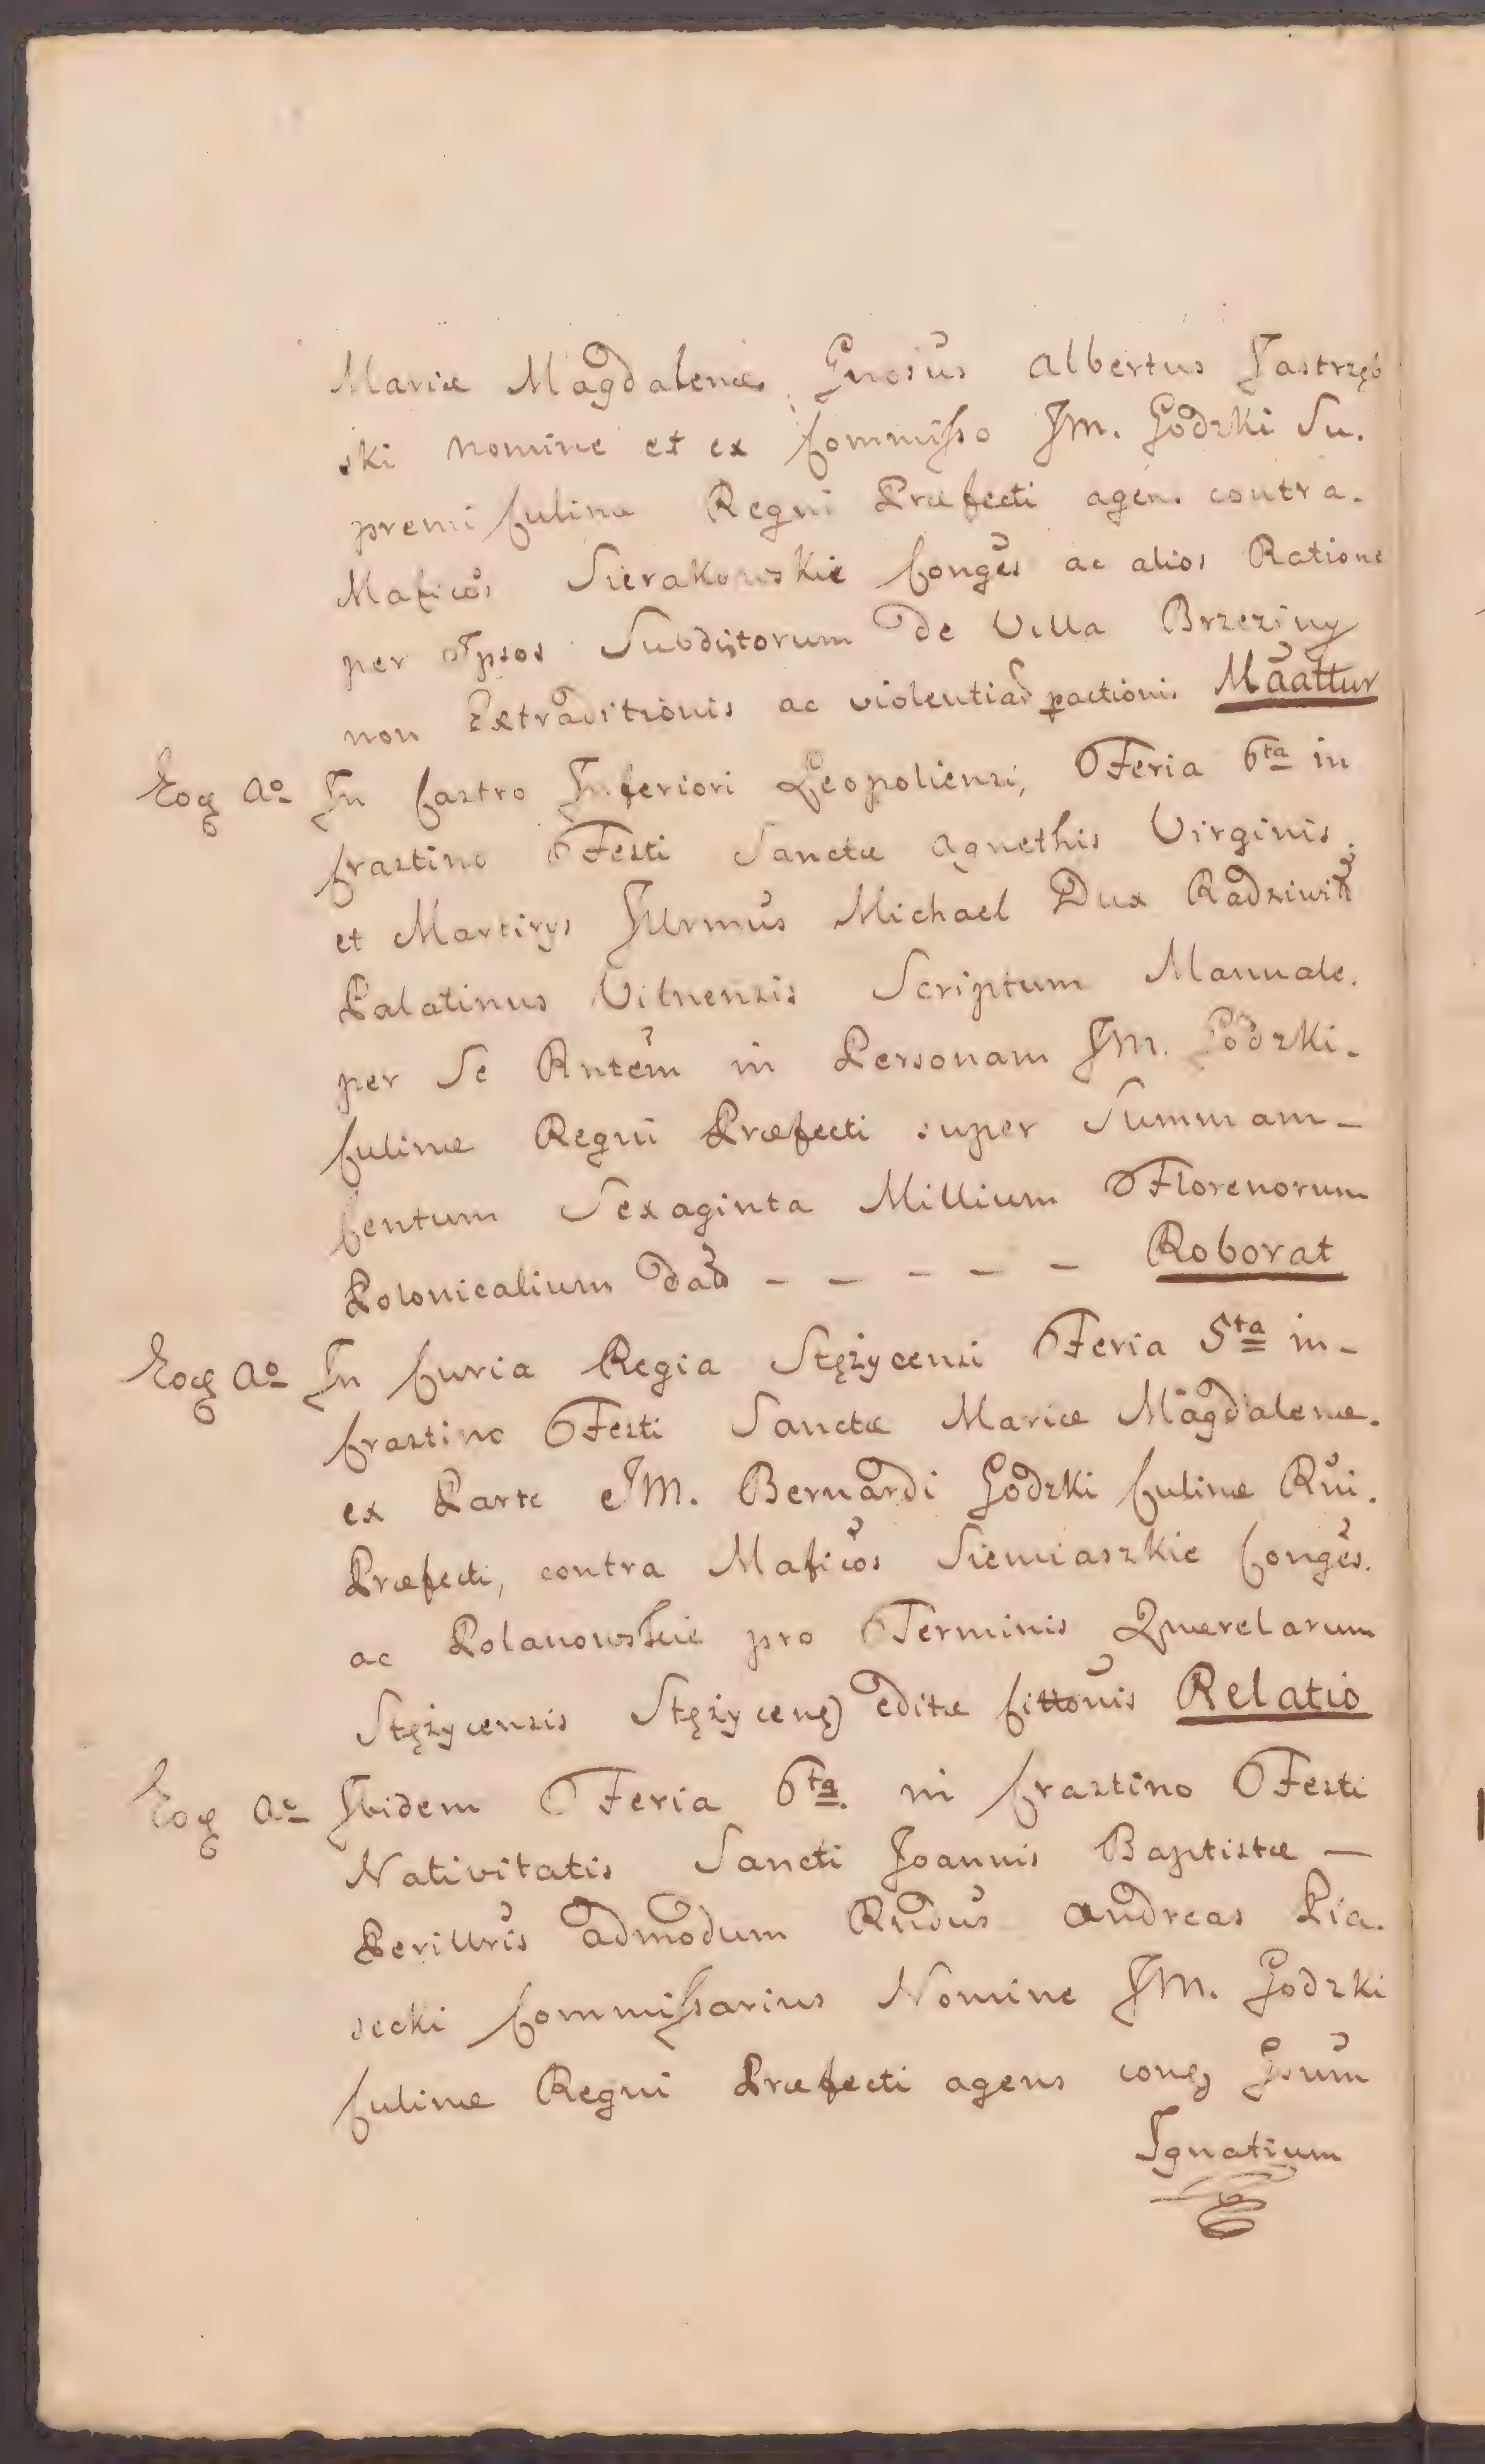 Mariæ Magdalenæ, Gnosus Albertus Jastrzęb
ski nomine et ex Commisso JM. Godzki Su.
premi Culinæ Regni Præfecti agen. contra.
Maficos Sierakowskie Conges ac alios Ratione
per Ipsos Subditorum de Villa Brzeziny
non Extraditionis ac violentiar pactionis Maattur
Eoq Ao In Castro Inferiori Leopoliensi, Feria 6ta in
Crastino Festi Sanctæ Agnethis Virginis.
et Martirys Jllrmus Michael Dux Radziwiłł
Palatinus Vilnensis Scriptum Manuale.
per Se Rntem in Personam JM. Godzki.
Culinæ Regni Præfecti super Summam -
Centum Sexaginta Millium Florenorum
Polonicalium dad - - - - - Roborat
Eoq Ao In Curia Regia Stężycensi Feria 5ta in -
Crastino Festi Sanctæ Mariæ Magdalenæ.
ex Parte JM. Bernardi Godzki Culinæ Rni.
Præfecti, contra Maficos Siemiaszkie Conges.
ac Polanowskie pro Terminis Querelarum
Stężycensis Stężycen editæ Cittonis Relatio
Eoq Ao Ibidem Feria 6ta. in Crastino Festi
Nativitatis Sancti Joannis Baptistæ —
Perillris admodum Rndus Andreas Pia.
secki Commissarius Nomine JM. Godzki
Culinæ Regni Præfecti agens conq Gsum
Ignatium